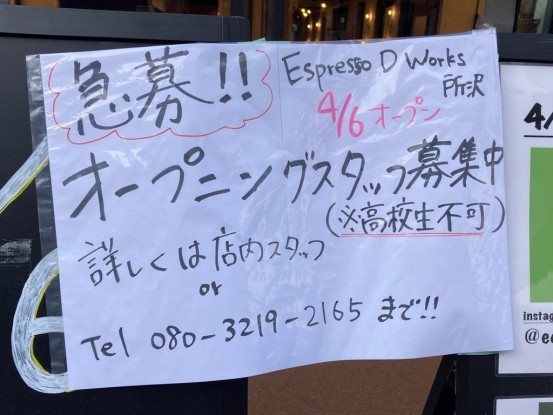 急募!!
Espresso D Works
所沢
4/6オープン
オープニングスタッフ募集中
(※高校生不可)
詳しくは店内スタッフ
or
Tel 080-3219-2165 まで!!
4/
instag